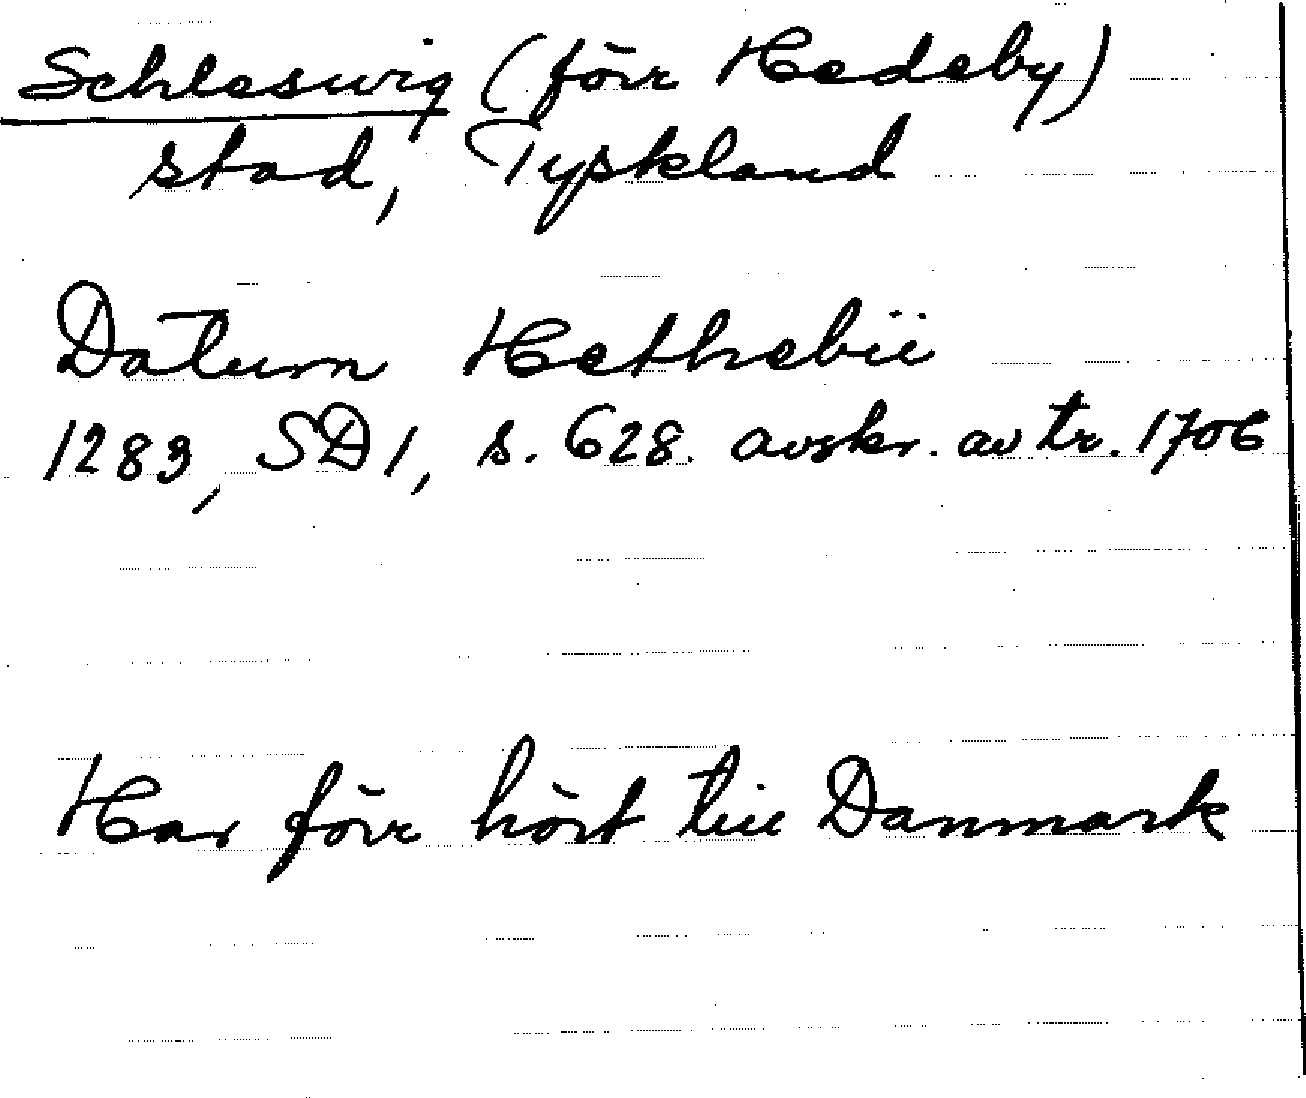 Schleswig (förr Hedeby)
stad, Tyskland
Datum Hethebii
1283, SD 1, s. 628. avskr. av tr. 1706
Har förr hört till Danmark